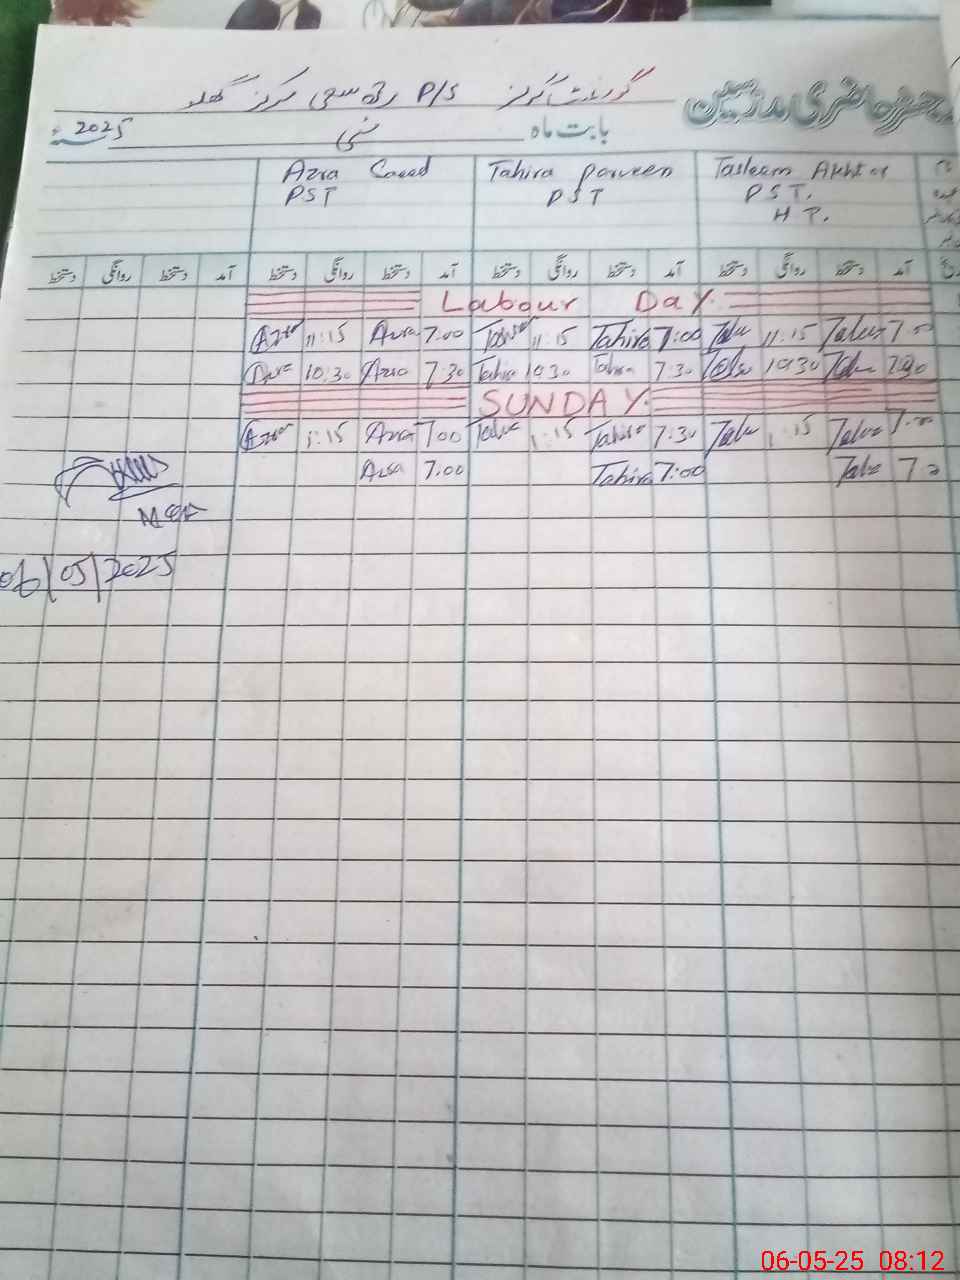 گورنمنٹ گرلز P/S رتہ سحی مرکز گھلہ
رجسٹر حاضری مدرسین
بابت ماہ مئی 2025ء
Tasleem Akhtar Tahira Parveen Azra Saeed
PST. PST PST
HT.
آمد دستخط روانگی دستخط آمد دستخط روانگی دستخط آمد دستخط روانگی دستخط آمد دستخط روانگی دستخط
Labour Day.
Azra 11:15 Azra 7.00 11:15 Tahira 7:00 11:15 7.00
Azra 10:30 Azra 7.30 Tahira 10 30 Tahira 7:30 10 30 7:30
SUNDAY.
Azra 1:15 Azra 7.00 1:15 Tahira 7:30 1:15 7.00
Azra 7.00 Tahira 7:00
MEA
06/05/2025
06-05-25 08:12